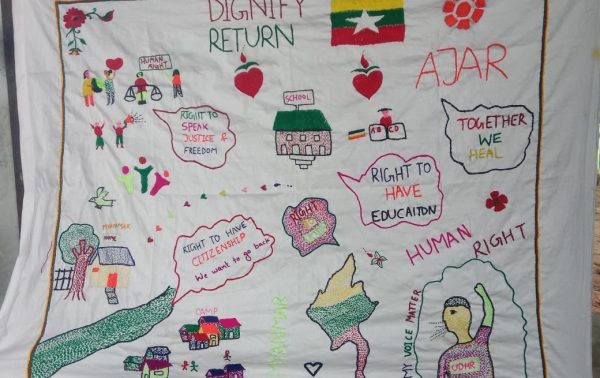 DIGNIFY
RETURN
AJAR
HUMAN
RIGHT
SCHOOL
RIGHT TO
SPEAK
JUSTICE &
FREEDOM
ABCD
TOGETHER
WE
HEAL
RIGHT TO
HAVE
EDUCAITON
RIGHT
RIGHT TO HAVE
CITIZENSHIP
We want to go back
HUMAN RIGHT
MYANMAR
CAMP
MYANMAR
MY VOICE MATTER
UDHR